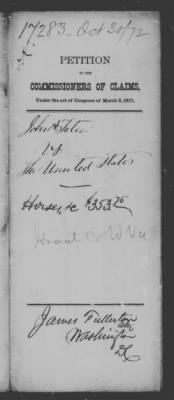 17283. Oct 30/72
PETITION
TO THE
COMMISSIONERS OF CLAIMS,
Under the act of Congress of March 3, 1871.
John
vs
The United States
Horses, &c $353.75
Co W Va
James Fullerton
Atty
Washington
DC